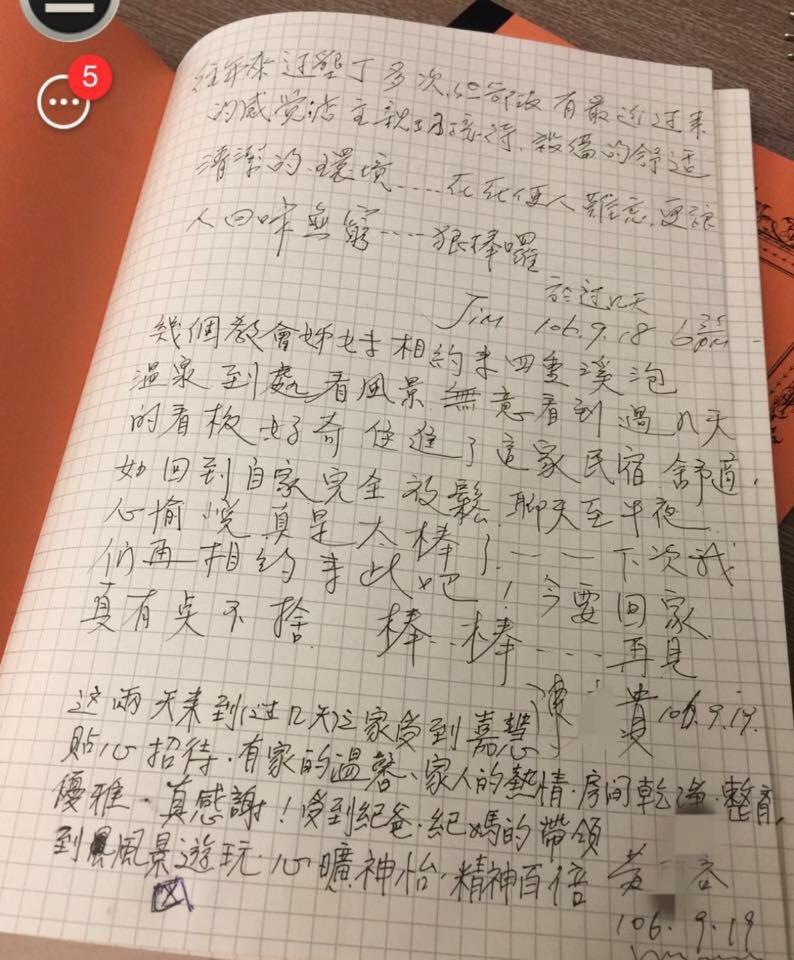 5
往年來過墾丁多次,但都沒有最近过来
的感觉店主親切接待,設備的舒适
清潔的環境....在在使人難忘,更讓
人回味無窮....狠棒囉
於过几天
Jim 106.9.18 6 25 pm
幾個教會姊妹相約来四重溪泡
溫泉到處看風景 無意看到過几天
的看板 好奇住進了這家民宿 舒適,
如回到自家完全放鬆 聊天至半夜
心愉悅真是太棒了---下次我
们再相約来此吧! 今要回家
真有奌不捨. 棒..棒....再見
陳 貴 106.9.19.
这兩天来到(过几天)之家受到嘉慧
貼心招待.有家的溫馨、家人的熱情.房间乾净.整齊,
優雅.真感謝!受到紀爸.紀媽的帶领
到風景遊玩.心曠神怡.精神百倍
黄 容
106.9.19